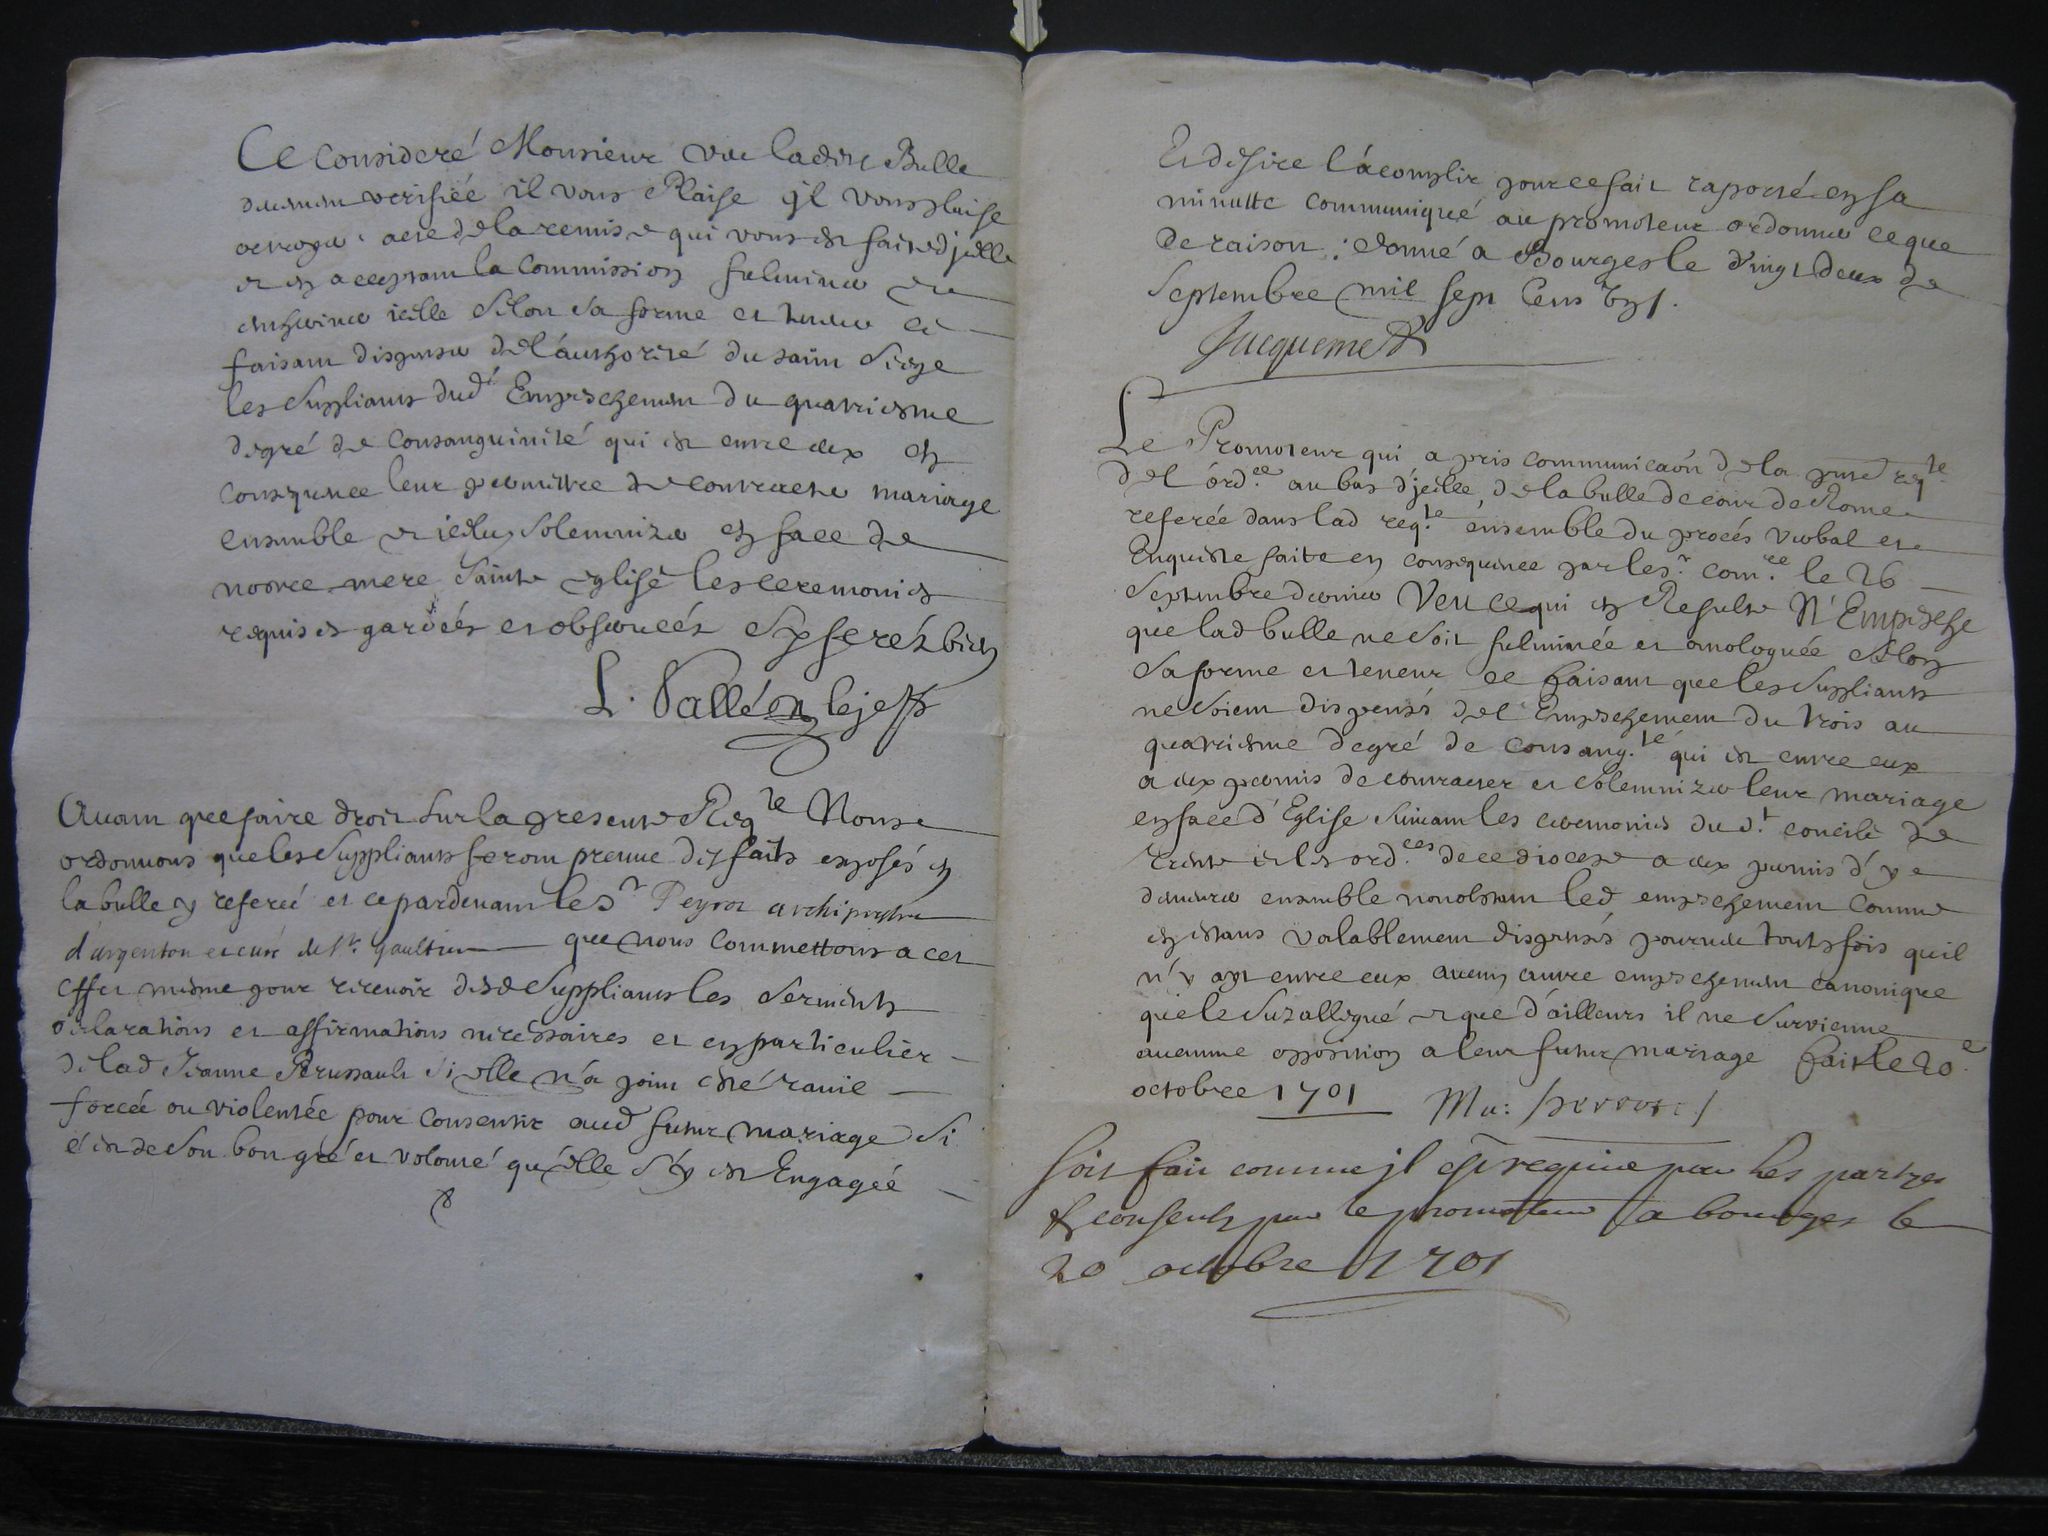 Ce consideré Monsieur vue ladite Bulle
duement verifiée il vous Plaise il vous plaise
octroyer acte de la remise qui vous est faite d'jcelle
et en acceptant la Commission fulminer et
entheriner icelle selon sa forme et teneur ce
faisant dispenser de l'authorité du saint Siege
les Suppliants dud't Empeschement du quatriesme
degré de Consanguinité qui est entre eux et
consequence leur permettre de contracter mariage
ensemble et iceluy Solemnizer en face de
nostre mere Sainte eglise les ceremonies
requises gardées et observées Et ferés bien
L. Vallée
Avant que faire droit Sur la presente Req.te Nous
ordonnons que les Suppliants feront preuve des faits exposés en
la bulle y referée et ce pardevant le S.r Peyrot archiprestre
d'argenton et curé de St. gaultier que nous Commettons a cet
effet mesme pour recevoir desd Suppliants les Serments
declarations et affirmations necessaires et en particulier
de lad Jeanne Perussault Si elle n'a point esté ravie
forcée ou violentée pour Consentir aud futur mariage Si
c'est de Son bon gré et volonté qu'elle S'y est Engagée
Et desire l'acomplir pour ce fait raporté en sa
minutte communiqué au promoteur ordonner ce que
de raison : donné a Bourges le vingt deux de
Septembre mil sept Cens un.
Jacquemet
Le Promoteur qui a pris communicaon de la pnte req.te
de l'ord.ce au bas d'jcelle, de la bulle de cour de Rome
referée dans lad req.te ensemble du procés verbal et
Enqueste faite en consequence par le S.r com.re le 26
Septembre dernier Veu ce qui en Resulte N'Empesche
que lad bulle ne Soit fulminée et omologuée Selon
Sa forme et teneur ce faisant que les Suppliants
ne Soient dispensés de l'Empeschement du trois au
quatriesme degré de Consang.té qui est entre eux
a eux permis de contracter et Solemnizer leur mariage
en face d'Eglise Suivant les ceremonies du d.t concile de
Trente et les ord.ces de ce diocese a eux permis d'y
demeurer ensemble nonobstant led empeschement Comme
en estans valablement dispensés pourveu toutesfois quil
n'y ayt entre eux aucun autre empeschement canonique
que le Susallegué et que d'ailleurs il ne Survienne
aucunne opposition a leur futur mariage fait le 20.e
octobre 1701
Soit fait comme jl est requis par les parties
& consenty par le promoteur a bourges le
20 octobre 1701